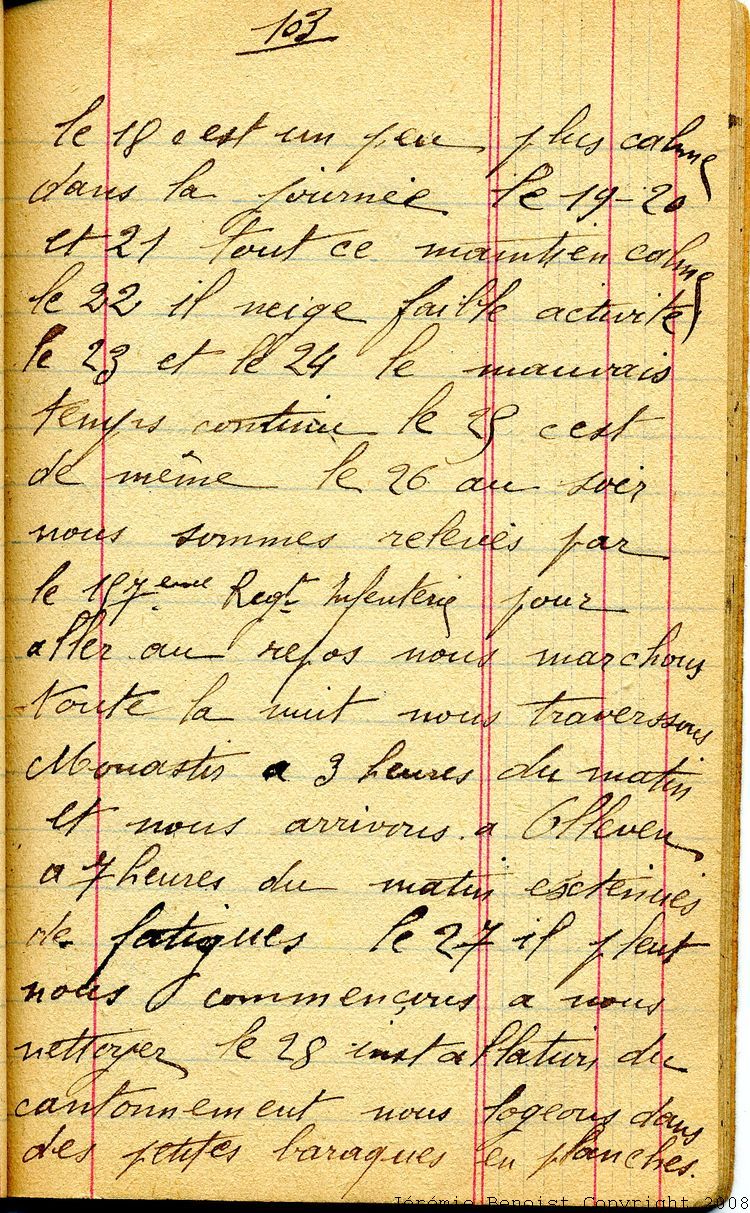 103
le 18 c est un peu plus calme
dans la journée le 19-20
et 21 tout ce maintien calme
le 22 il neige faible activité
le 23 et le 24 le mauvais
temps continue le 25 c est
de même le 26 au soir
nous sommes relevés par
le 187eme Regt Infenterie pour
aller au repos nous marchons
toute la nuit nous traverssons
Monastir a 3 heures du matin
et nous arrivons a
a 7 heures du matin exctenués
de fatigues le 27 il pleut
nous commençons a nous
nettoyer le 28 installation du
cantonnement nous logeons dans
des petites baraques en planches.
Jérémie Benoist Copyright 2008